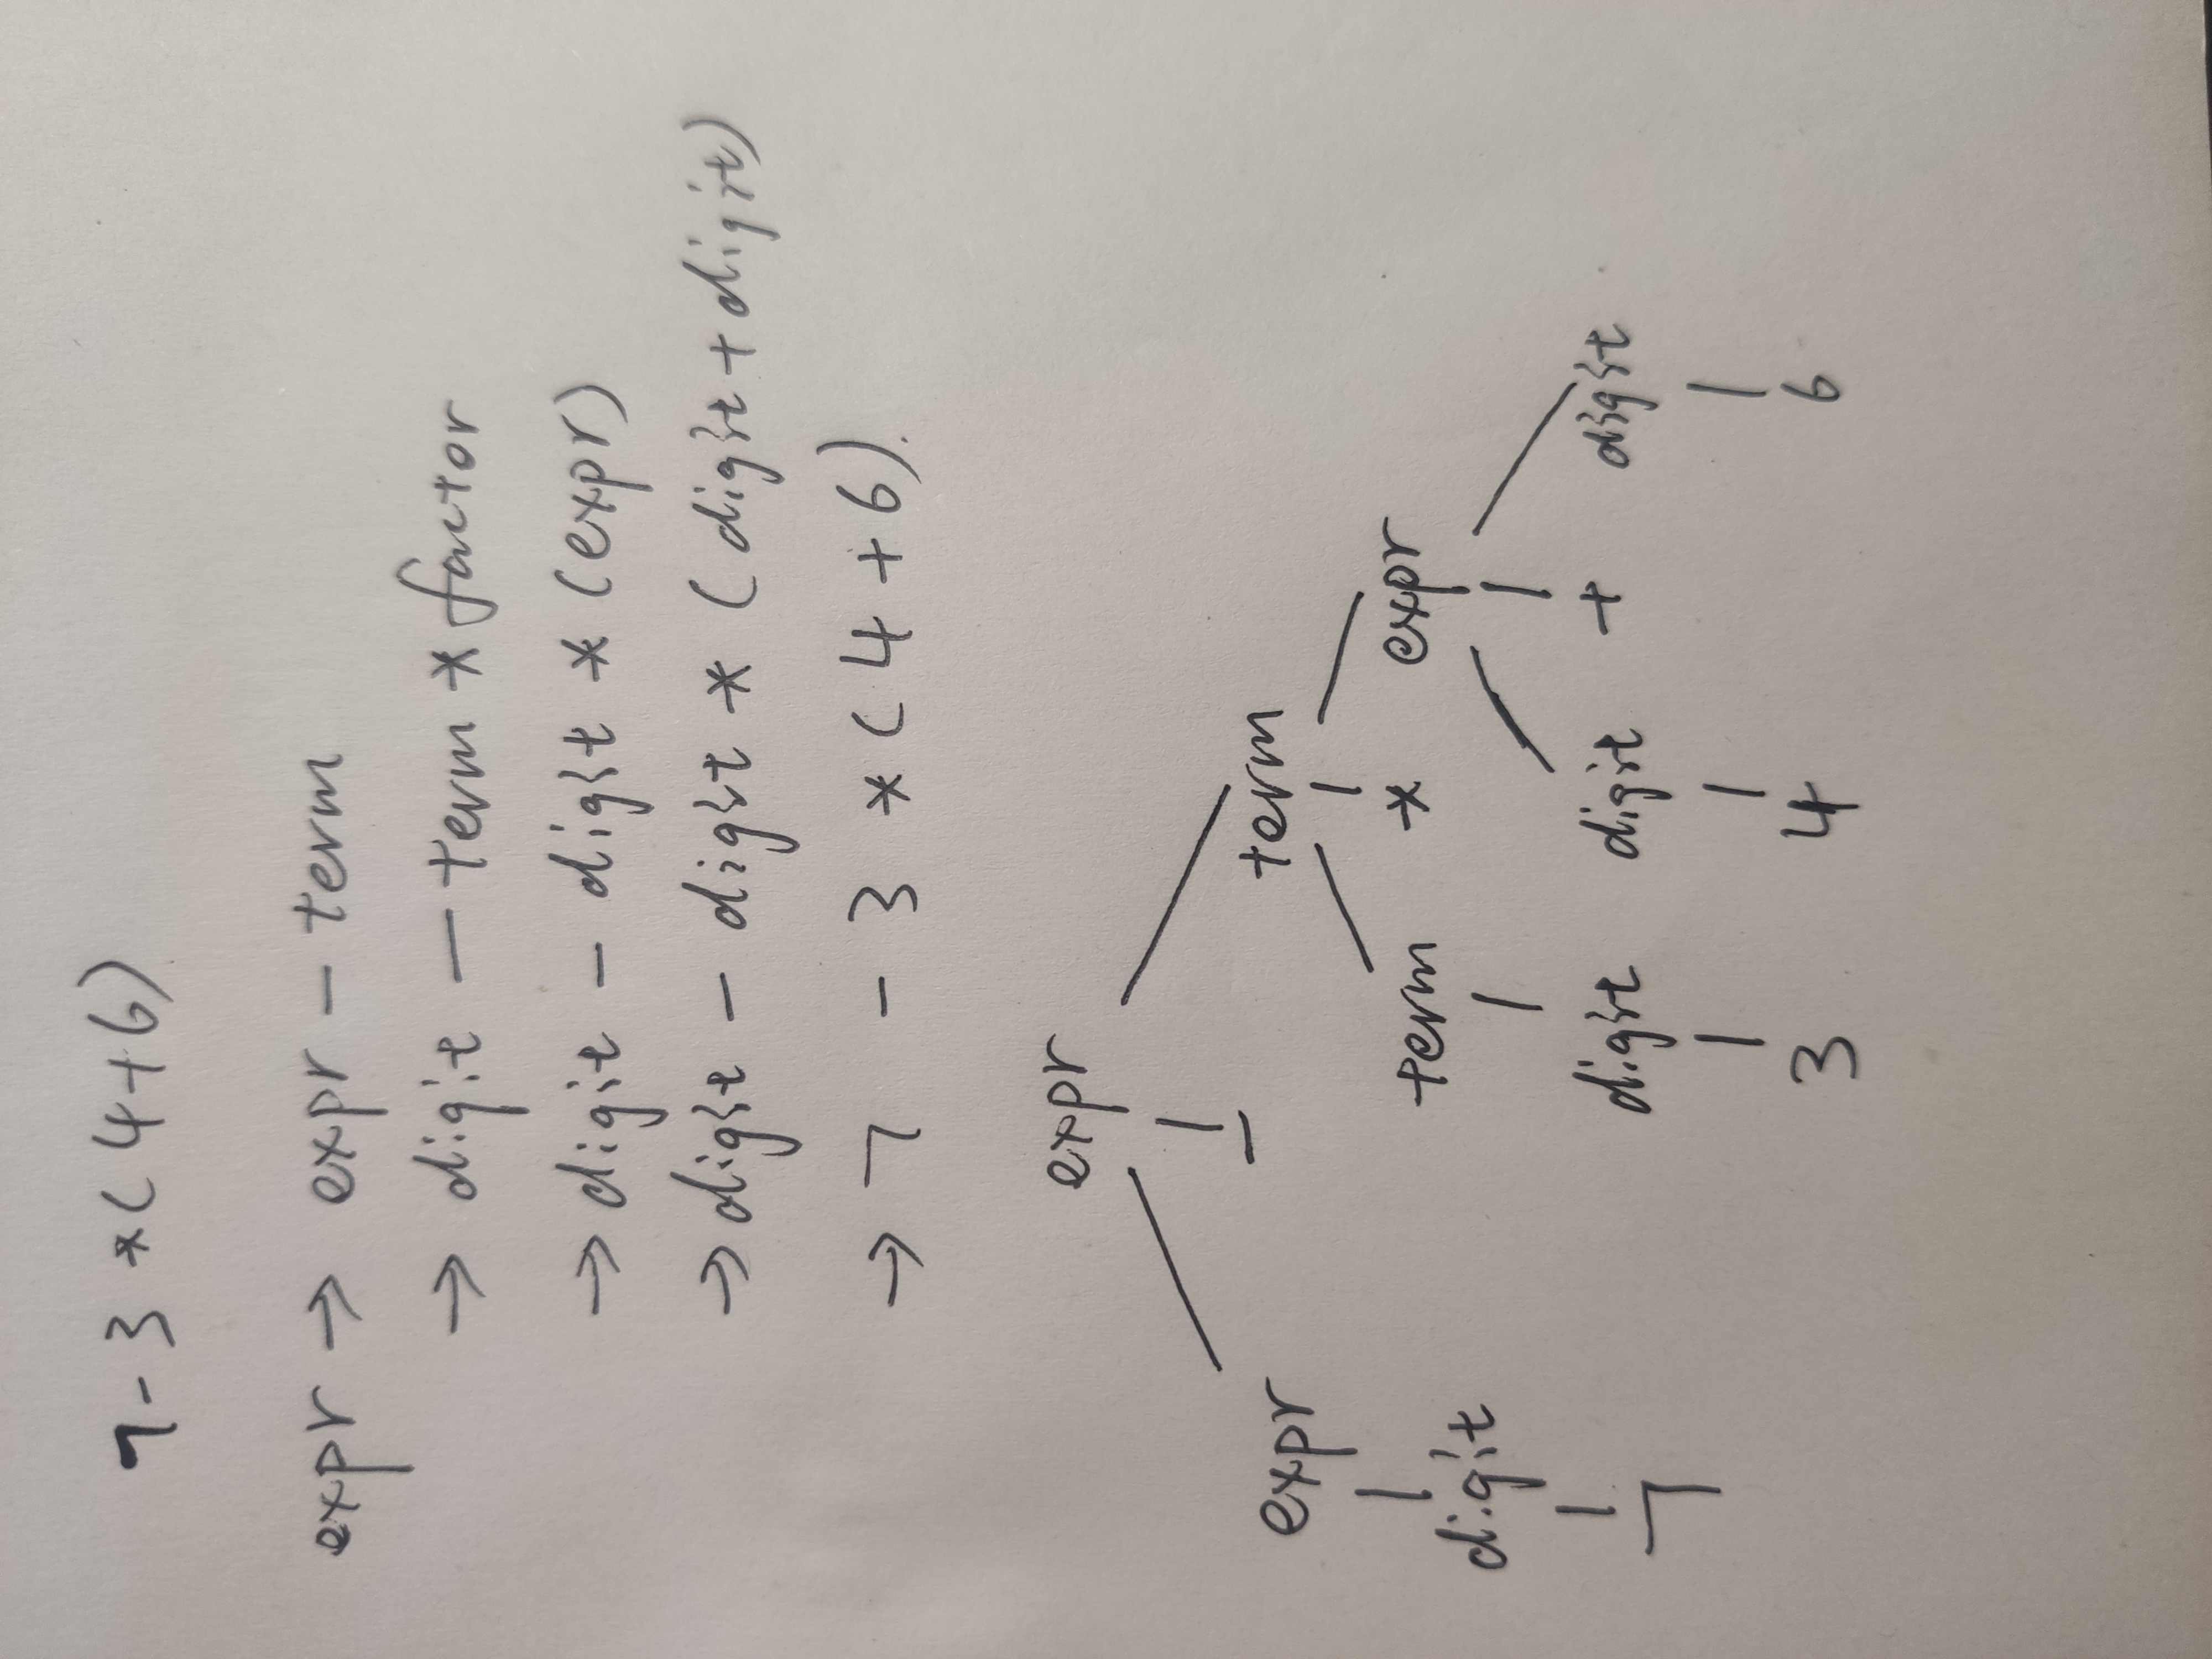 7-3*(4+6)
expr → expr - term
→ digit - term * factor
→ digit - digit * (expr)
→ digit - digit * (digit + digit)
→ 7 - 3 * (4 + 6).
expr
expr - term
term * expr
digit
digit digit + digit
7
3 4 6